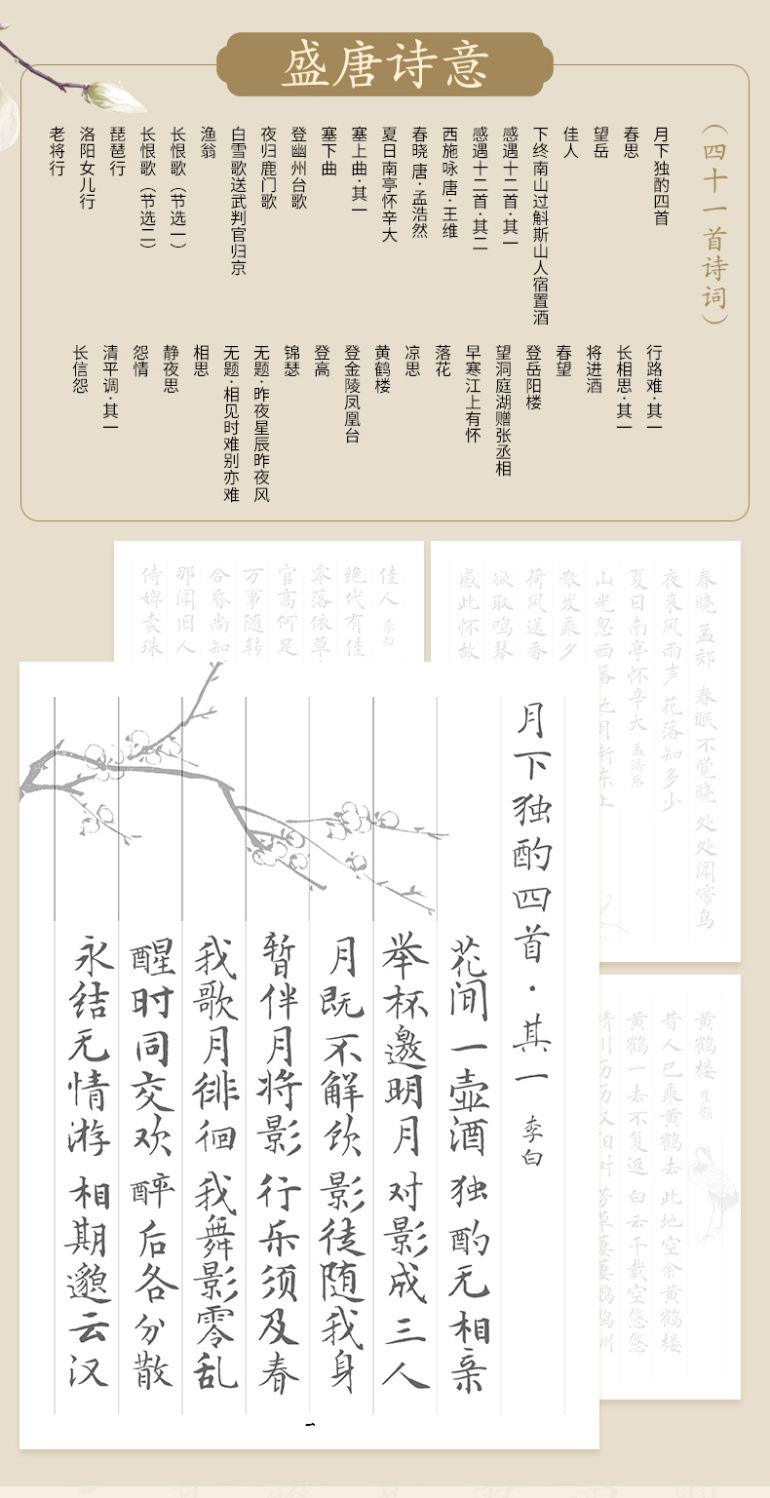 盛唐诗意
（四十一首诗词）
月下独酌四首
春思
望岳
佳人
下终南山过斛斯山人宿置酒
感遇十二首·其一
感遇十二首·其二
西施咏 唐·王维
春晓 唐·孟浩然
夏日南亭怀辛大
塞上曲·其一
塞下曲
登幽州台歌
夜归鹿门歌
白雪歌送武判官归京
渔翁
长恨歌（节选一）
长恨歌（节选二）
琵琶行
洛阳女儿行
老将行
行路难·其一
长相思·其一
将进酒
春望
登岳阳楼
望洞庭湖赠张丞相
早寒江上有怀
落花
凉思
黄鹤楼
登金陵凤凰台
登高
锦瑟
无题·昨夜星辰昨夜风
无题·相见时难别亦难
相思
静夜思
怨情
清平调·其一
长信怨
春晓 孟郊 春眠不觉晓 处处闻啼鸟
夜来风雨声 花落知多少
夏日南亭怀辛大 孟浩然
山光忽西落 池月渐东上
散发乘夕
荷风送香
欲取鸣琴
感此怀故
佳人 李白
绝代有佳
零落依草
官高何足
万事随转
合昏尚知
那闻旧人
侍婢卖珠
月下独酌四首·其一 李白
花间一壶酒 独酌无相亲
举杯邀明月 对影成三人
月既不解饮 影徒随我身
暂伴月将影 行乐须及春
我歌月徘徊 我舞影零乱
醒时同交欢 醉后各分散
永结无情游 相期邈云汉
黄鹤楼 崔颢
昔人已乘黄鹤去 此地空余黄鹤楼
黄鹤一去不复返 白云千载空悠悠
晴川历历汉阳树 芳草萋萋鹦鹉洲